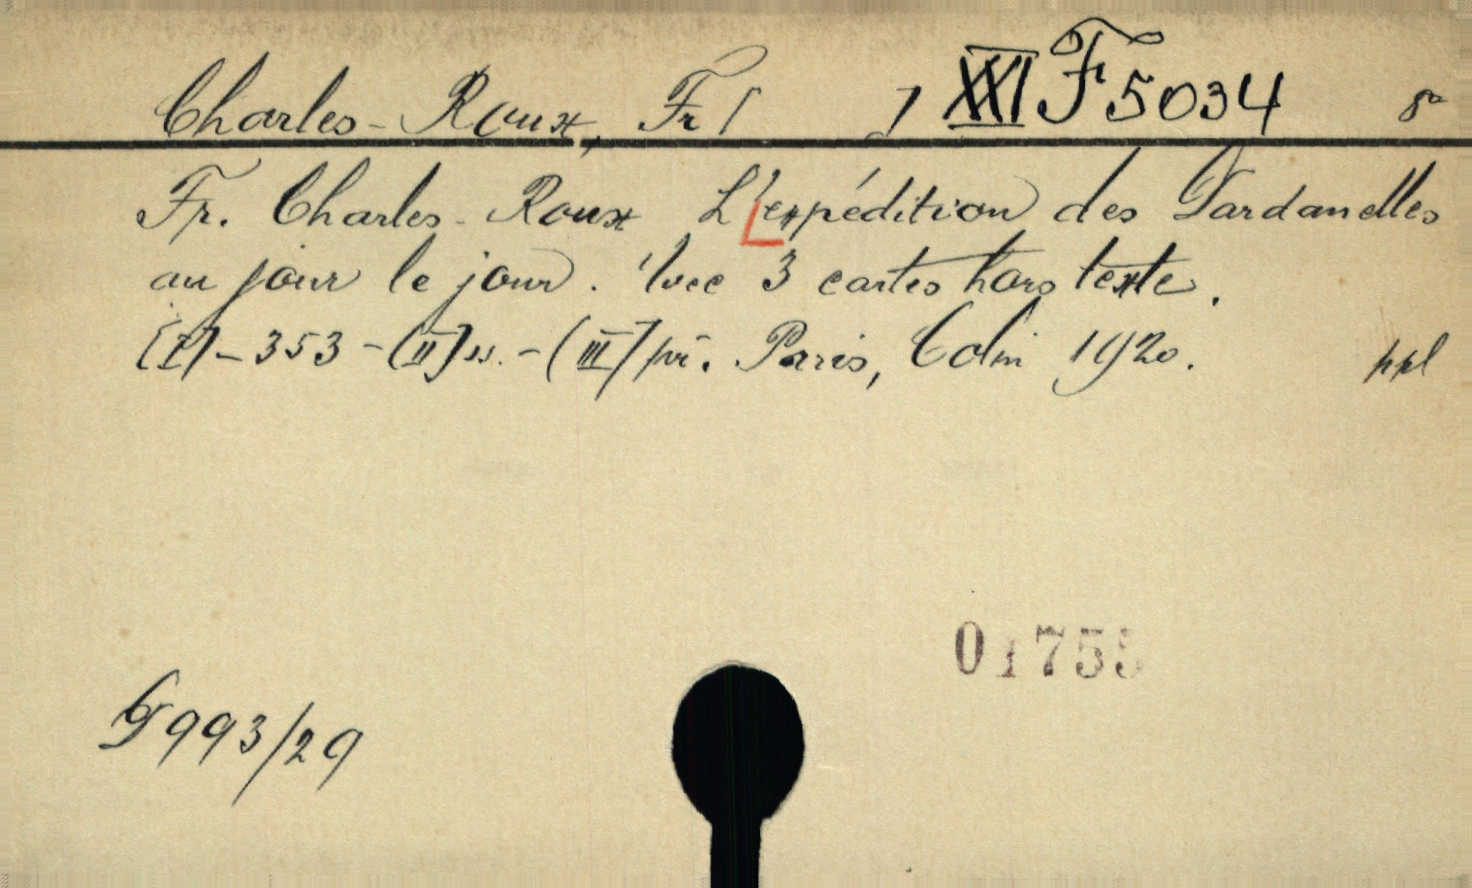 Charles-Roux, Fr [ ] XXI F 5034 8°
Fr. Charles-Roux L'expédition des Dardanelles
au jour le jour. Avec 3 cartes hors texte.
(I)-353-(II)ss.-(III) př. Paris, Colin 1920. ppl
01755
G 993/29